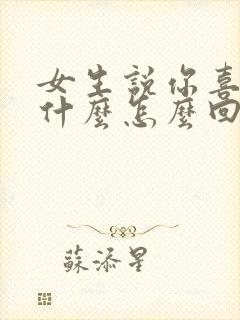 女生説你喜
什麼怎麼回
蘇添星